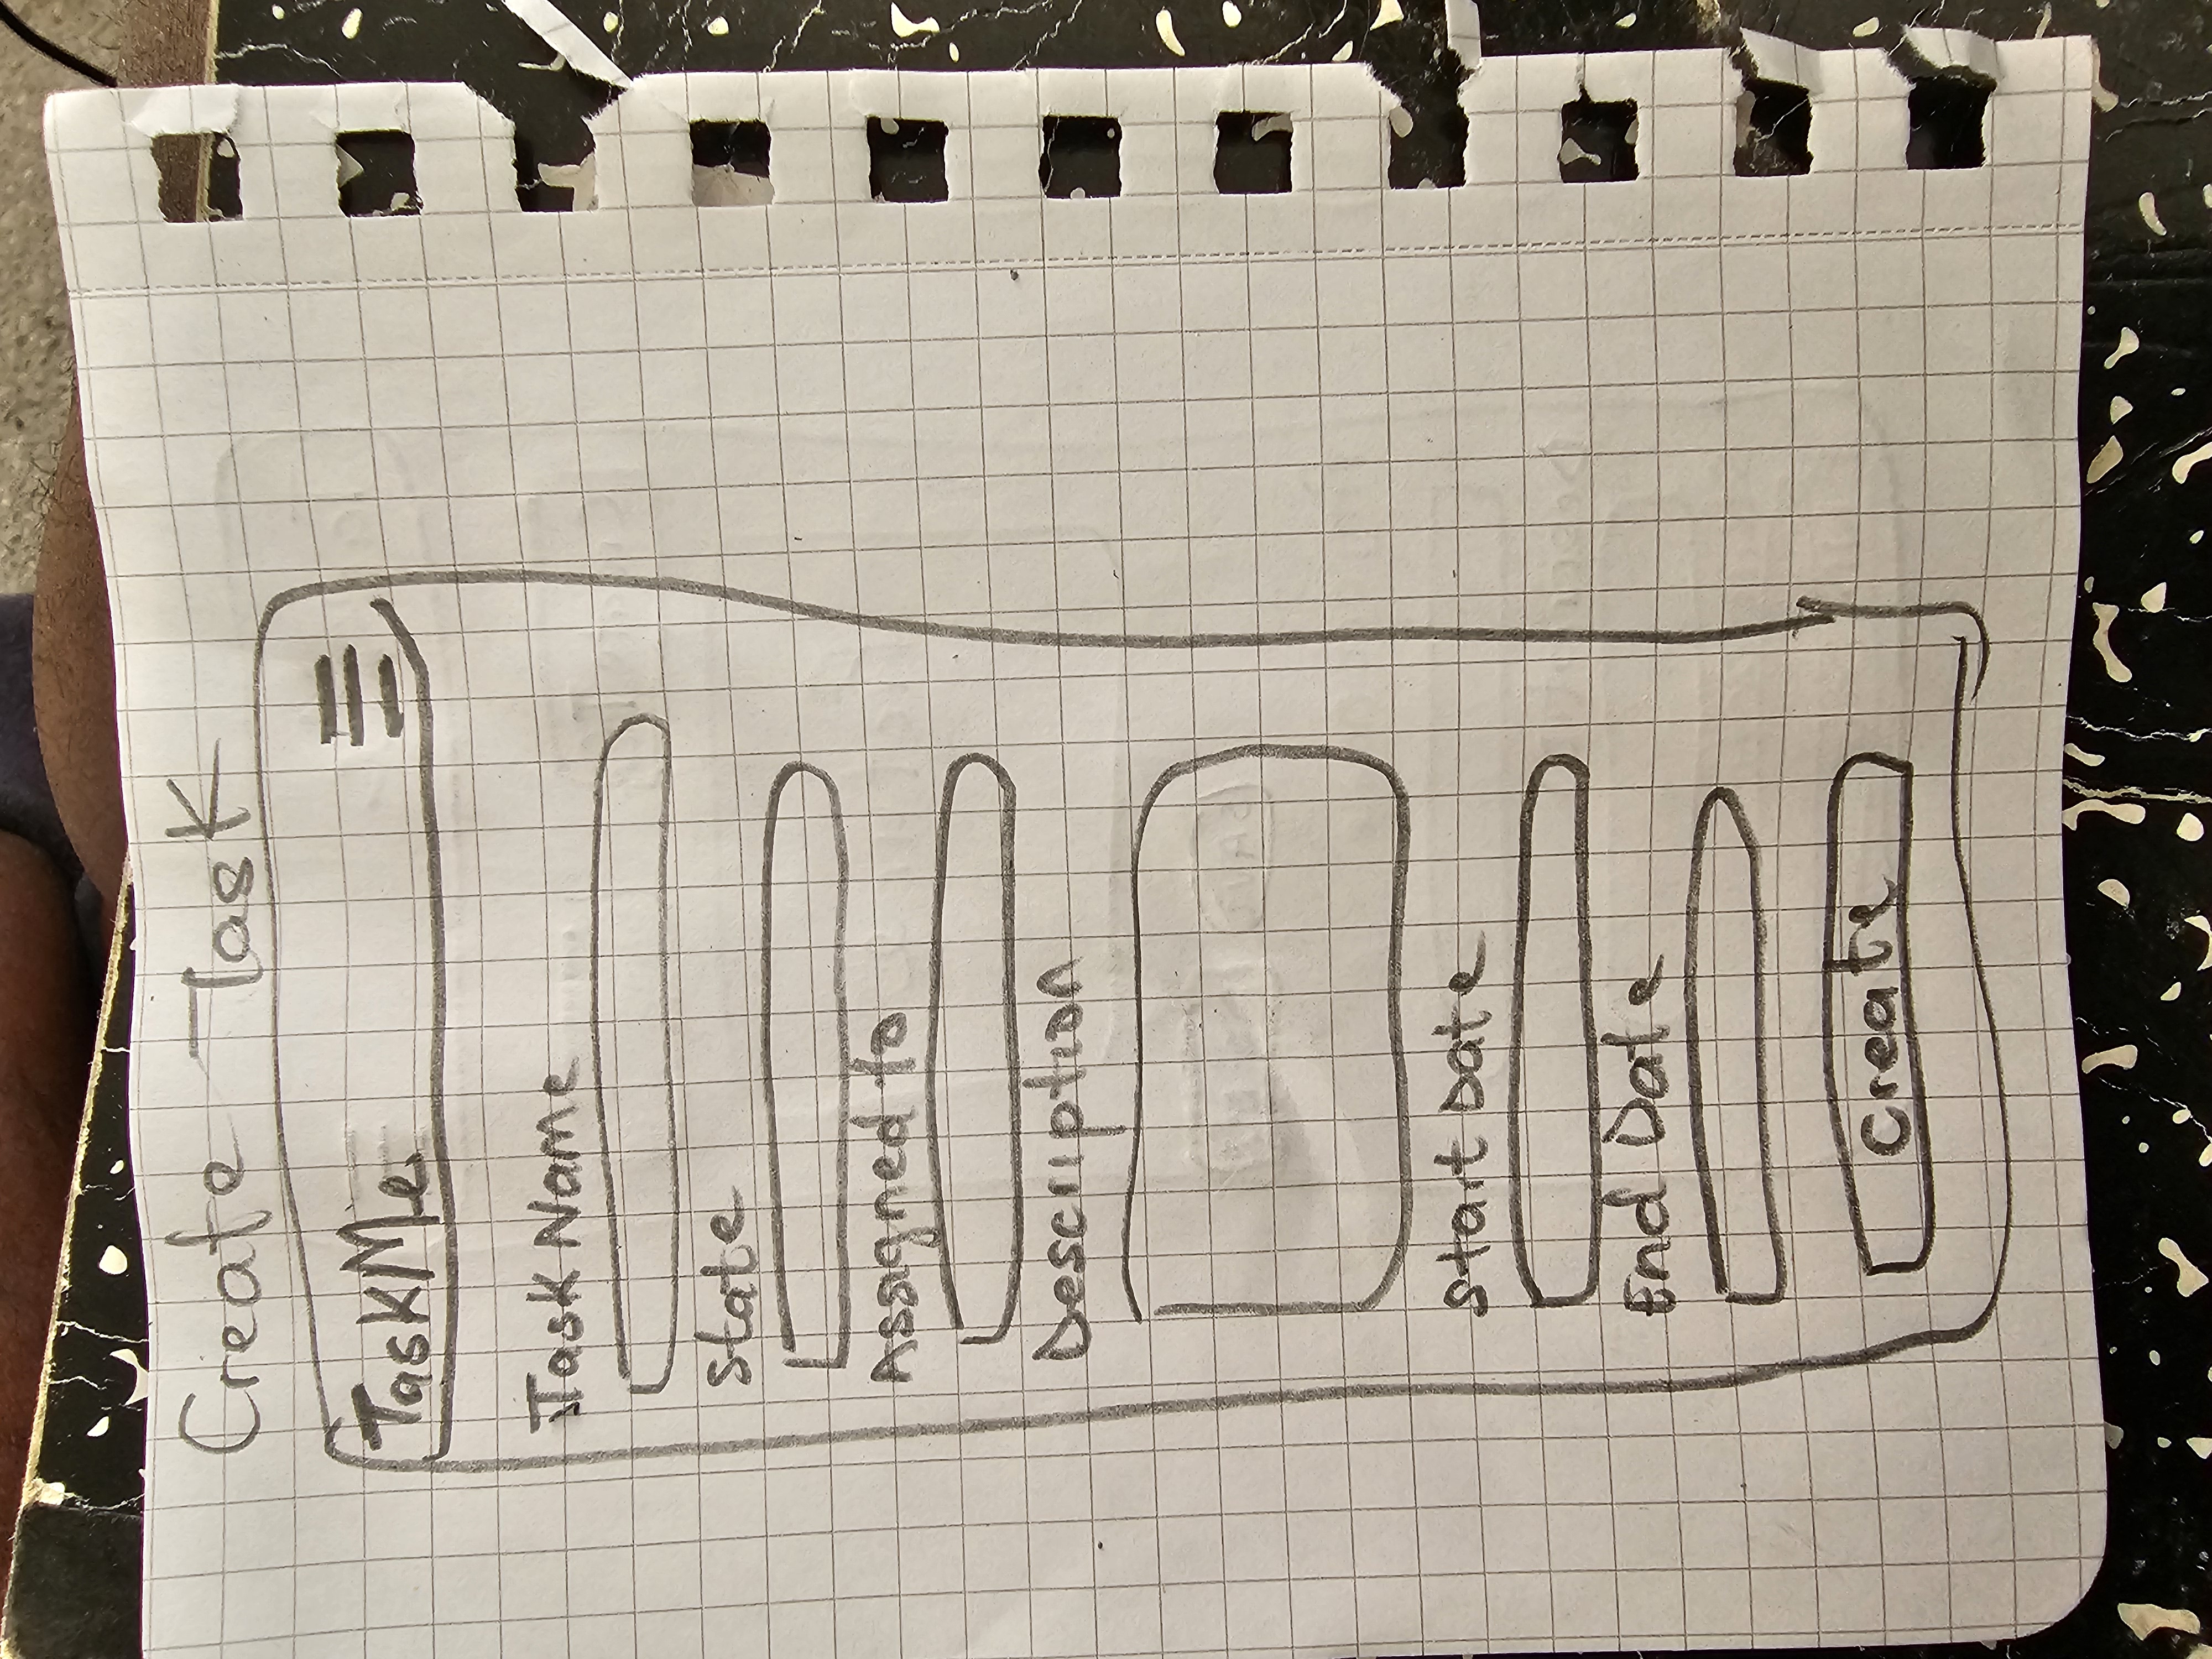 Create Task
TaskMe
Task Name
State
Assigned to
Description
Start Date
End Date
Create